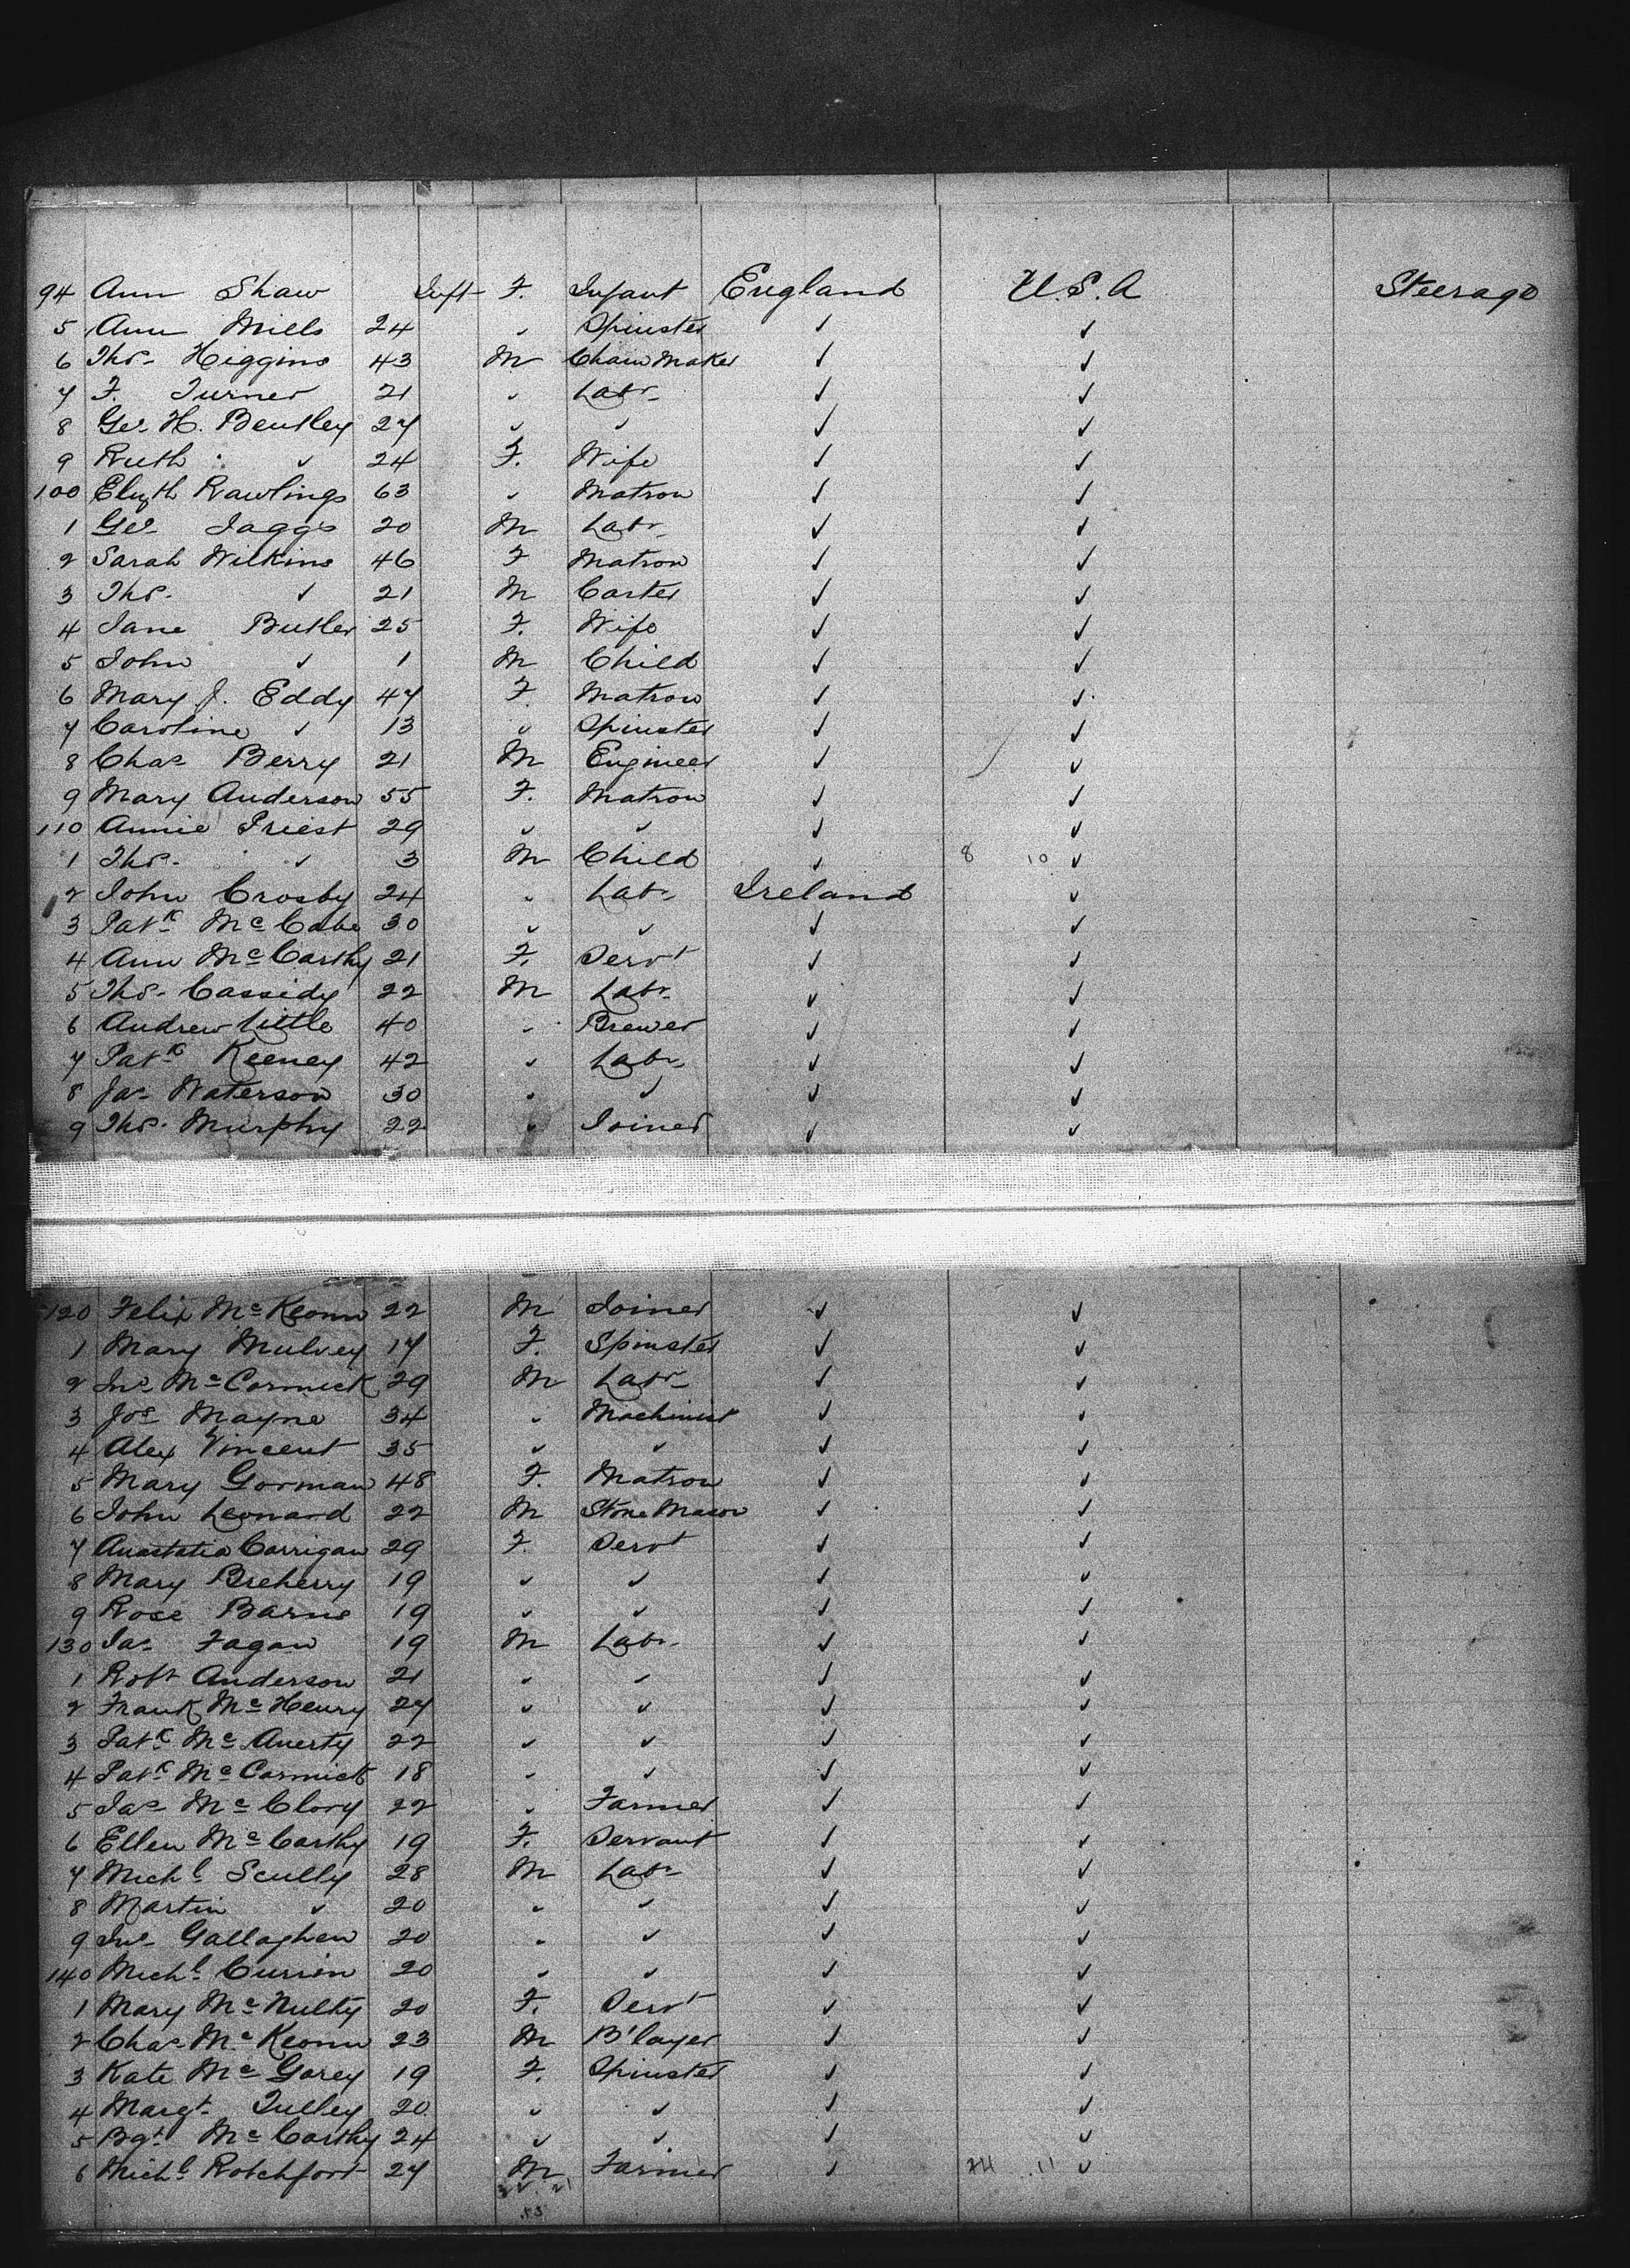 94 Ann Shaw Inft F. Infant England U.S.A Steerage
5 Ann Mills 24 ✓ Spinster ✓ ✓
6 Thos. Higgins 43 M Chain Maker ✓ ✓
7 F. Turner 21 ✓ Labr. ✓ ✓
8 Geo. H. Bentley 27 ✓ ✓ ✓ ✓
9 Ruth ✓ 24 F. Wife ✓ ✓
100 Elizth Rawlings 63 ✓ Matron ✓ ✓
1 Geo. Jaggs 20 M Labr. ✓ ✓
2 Sarah Wilkins 46 F Matron ✓ ✓
3 Thos. ✓ 21 M Carter ✓ ✓
4 Jane Butler 25 F. Wife ✓ ✓
5 John ✓ 1 M Child ✓ ✓
6 Mary J. Eddy 47 F. Matron ✓ ✓
7 Caroline ✓ 13 ✓ Spinster ✓ ✓
8 Chas Berry 21 M Engineer ✓ ✓
9 Mary Anderson 55 F. Matron ✓ ✓
110 Annie Priest 29 ✓ ✓ ✓ ✓
1 Thos. ✓ 3 M Child ✓ 8 10 ✓
2 John Crosby 24 ✓ Labr. Ireland ✓
3 Patk McCabe 30 ✓ ✓ ✓ ✓
4 Ann McCarthy 21 F. Servt ✓ ✓
5 Thos. Cassidy 22 M Labr. ✓ ✓
6 Andrew Little 40 ✓ Brewer ✓ ✓
7 Patk Keeney 42 ✓ Labr. ✓ ✓
8 Jas Waterson 30 ✓ ✓ ✓ ✓
9 Thos. Murphy 22 ✓ Joiner ✓ ✓
120 Felix McKeown 22 M Joiner ✓ ✓
1 Mary Mulvey 17 F. Spinster ✓ ✓
2 Jno McCormick 29 M Labr. ✓ ✓
3 Jos Mayne 34 ✓ Machinist ✓ ✓
4 Alex Vincent 35 ✓ ✓ ✓ ✓
5 Mary Gorman 48 F. Matron ✓ ✓
6 John Leonard 22 M Stone Mason ✓ ✓
7 Anastatia Carrigan 29 F. Servt ✓ ✓
8 Mary Breherry 19 ✓ ✓ ✓ ✓
9 Rose Barns 19 ✓ ✓ ✓ ✓
130 Jas Fagan 19 M Labr. ✓ ✓
1 Robt Anderson 21 ✓ ✓ ✓ ✓
2 Frank McHenry 27 ✓ ✓ ✓ ✓
3 Patk McAnerty 22 ✓ ✓ ✓ ✓
4 Patk McCormick 18 ✓ ✓ ✓ ✓
5 Jas McClory 22 ✓ Farmer ✓ ✓
6 Ellen McCarthy 19 F. Servant ✓ ✓
7 Michl Scully 28 M Labr ✓ ✓
8 Martin ✓ 20 ✓ ✓ ✓ ✓
9 Jno Gallaghen 20 ✓ ✓ ✓ ✓
140 Michl Currin 20 ✓ ✓ ✓ ✓
1 Mary McNulty 20 F. Servt ✓ ✓
2 Chas McKeown 23 M B'layer ✓ ✓
3 Kate McGorey 19 F. Spinster ✓ ✓
4 Margt Tulley 20 ✓ ✓ ✓ ✓
5 Bgt McCarthy 24 ✓ ✓ ✓ ✓
6 Michl Rotchfort 27 M Farmer ✓ 24 11 ✓
53